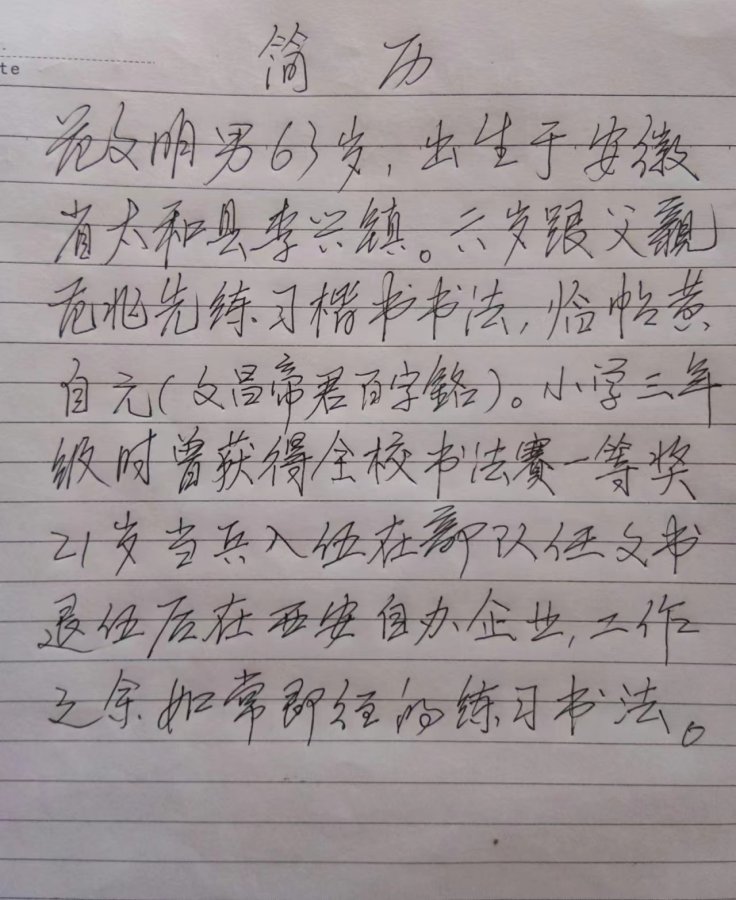 te
简 历
范文明男63岁，出生于安徽
省太和县李兴镇。六岁跟父親
范兆先练习楷书书法，临帖黄
自元（文昌帝君百字銘）。小学三年
级时曾获得全校书法赛一等奖
21岁当兵入伍在部队任文书
退伍后在西安自办企业，工作
之余如常即往的练习书法。